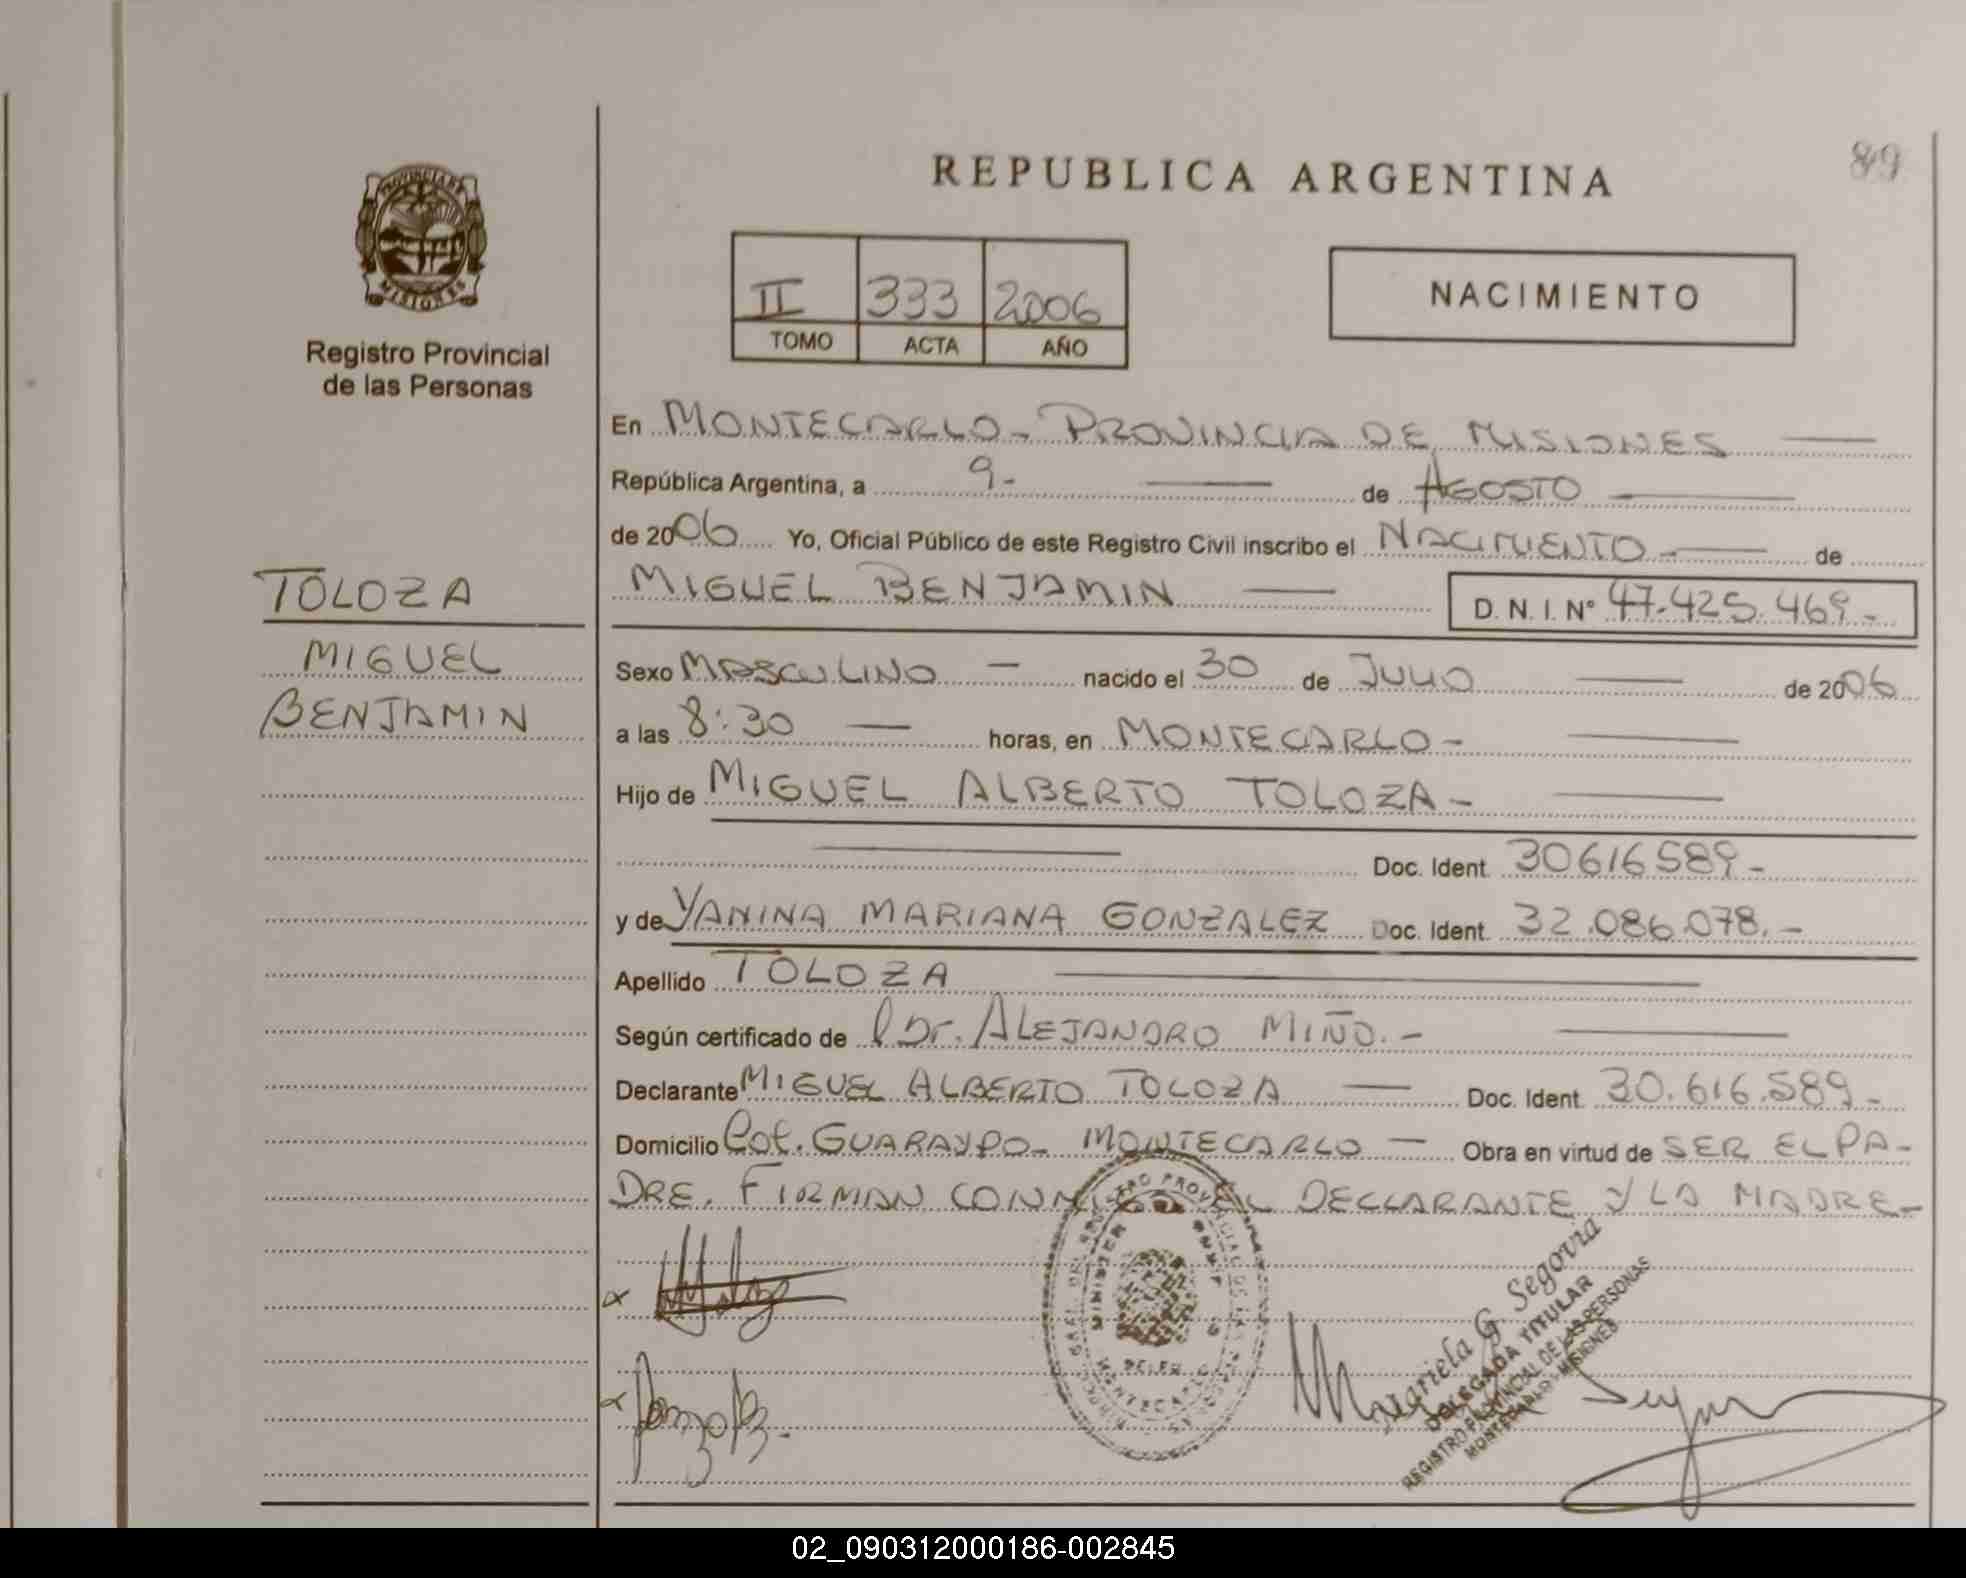 89
REPUBLICA ARGENTINA
PROVINCIA DE
MISIONES
Registro Provincial
de las Personas
II 333 2006
TOMO ACTA AÑO
NACIMIENTO
En MONTECARLO - PROVINCIA DE MISIONES
República Argentina, a 9- de AGOSTO
de 2006 Yo, Oficial Público de este Registro Civil inscribo el NACIMIENTO - de
TOLOZA
MIGUEL
BENJAMIN
MIGUEL BENJAMIN D. N. I. Nº 47.425.469.-
Sexo MASCULINO — nacido el 30 de JULIO de 2006
a las 8:30 — horas, en MONTECARLO -
Hijo de MIGUEL ALBERTO TOLOZA -
Doc. Ident. 30616589.-
y de YANINA MARIANA GONZALEZ Doc. Ident. 32.086.078.-
Apellido TOLOZA
Según certificado de Dr. ALEJANDRO MIÑO.-
Declarante MIGUEL ALBERTO TOLOZA — Doc. Ident. 30.616.589.-
Domicilio Cot. GUARAYPO - MONTECARLO — Obra en virtud de SER EL PA-
DRE. FIRMAN CONMIGO EL DECLARANTE Y LA MADRE-
Mariela G. Segovia
DELEGADA TITULAR
REGISTRO PROVINCIAL DE LAS PERSONAS
MONTECARLO - MISIONES
02_090312000186-002845